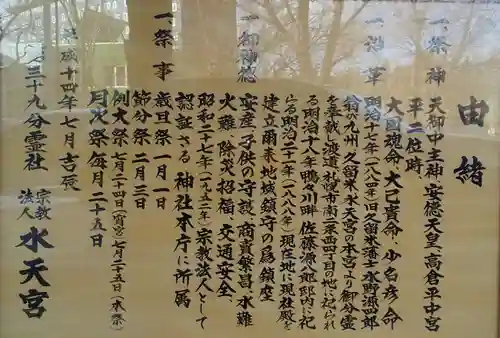 由緒
一、祭神 天御中主神、安徳天皇、高倉平中宮
平二位時、
大国魂命、大己貴命、少名彦命
一、沿革 明治十七年(一八八四)旧久留米藩士、水野源四郎
翁の九州、久留米、水天宮の本宮より御分霊
を奉載し渡道、札幌市南二条西四丁目の地に祀られ
る。明治十八年鴨々川畔、佐藤源八郎邸内に祀
らる。明治二十一年(一八八八)現在地に現社殿を
建立爾来地域鎮守の為鎮座
一、御神徳 安産、子供の守護、商売繁昌、水難
火難、除災招福、交通安全、
昭和二十七年(一九五二年)宗教法人として
認証さる 神社本庁に所属
一、祭事 歳旦祭 一月一日
節分祭 二月三日
例大祭 七月二十四日(宵宮)七月二十五日(本祭)
月次祭 毎月二十五日
平成十四年七月吉辰
七三十九分霊社
宗教法人 水天宮